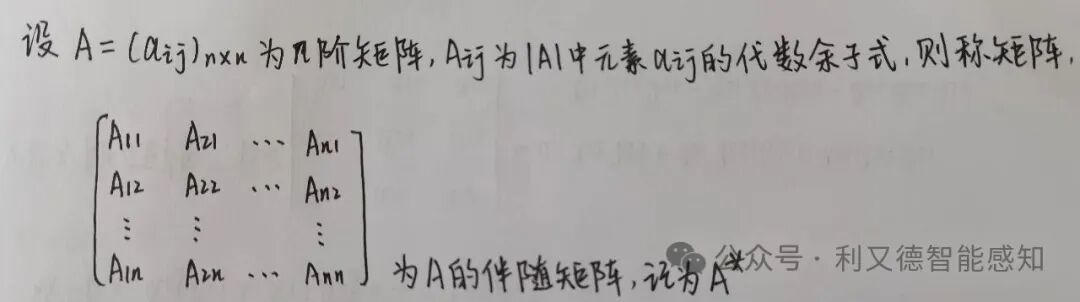 设 A = (aij)n×n 为 n 阶矩阵, Aij 为 |A| 中元素 aij 的代数余子式, 则称矩阵,
A11 A21 ⋯ An1
A12 A22 ⋯ An2
⋮ ⋮ ⋮
A1n A2n ⋯ Ann 为 A 的伴随矩阵, 记为 A*
公众号 · 利又德智能感知